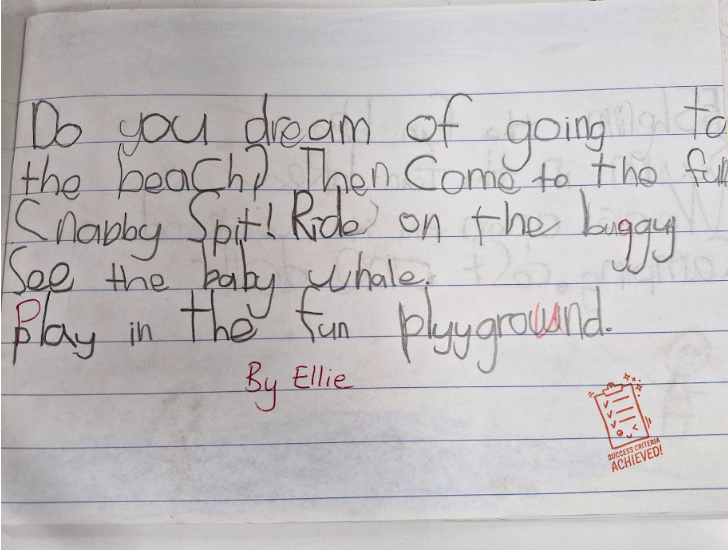 Do you dream of going to
the beach? Then Come to the fun
Snabby Spit! Ride on the buggy
See the baby whale.
Play in the fun plyyground.
By Ellie
SUCCESS CRITERIA
ACHIEVED!